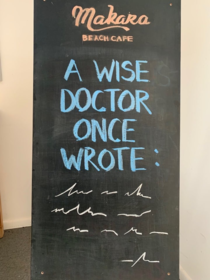 Makara
BEACH CAFE
A WISE
DOCTOR
ONCE
WROTE: